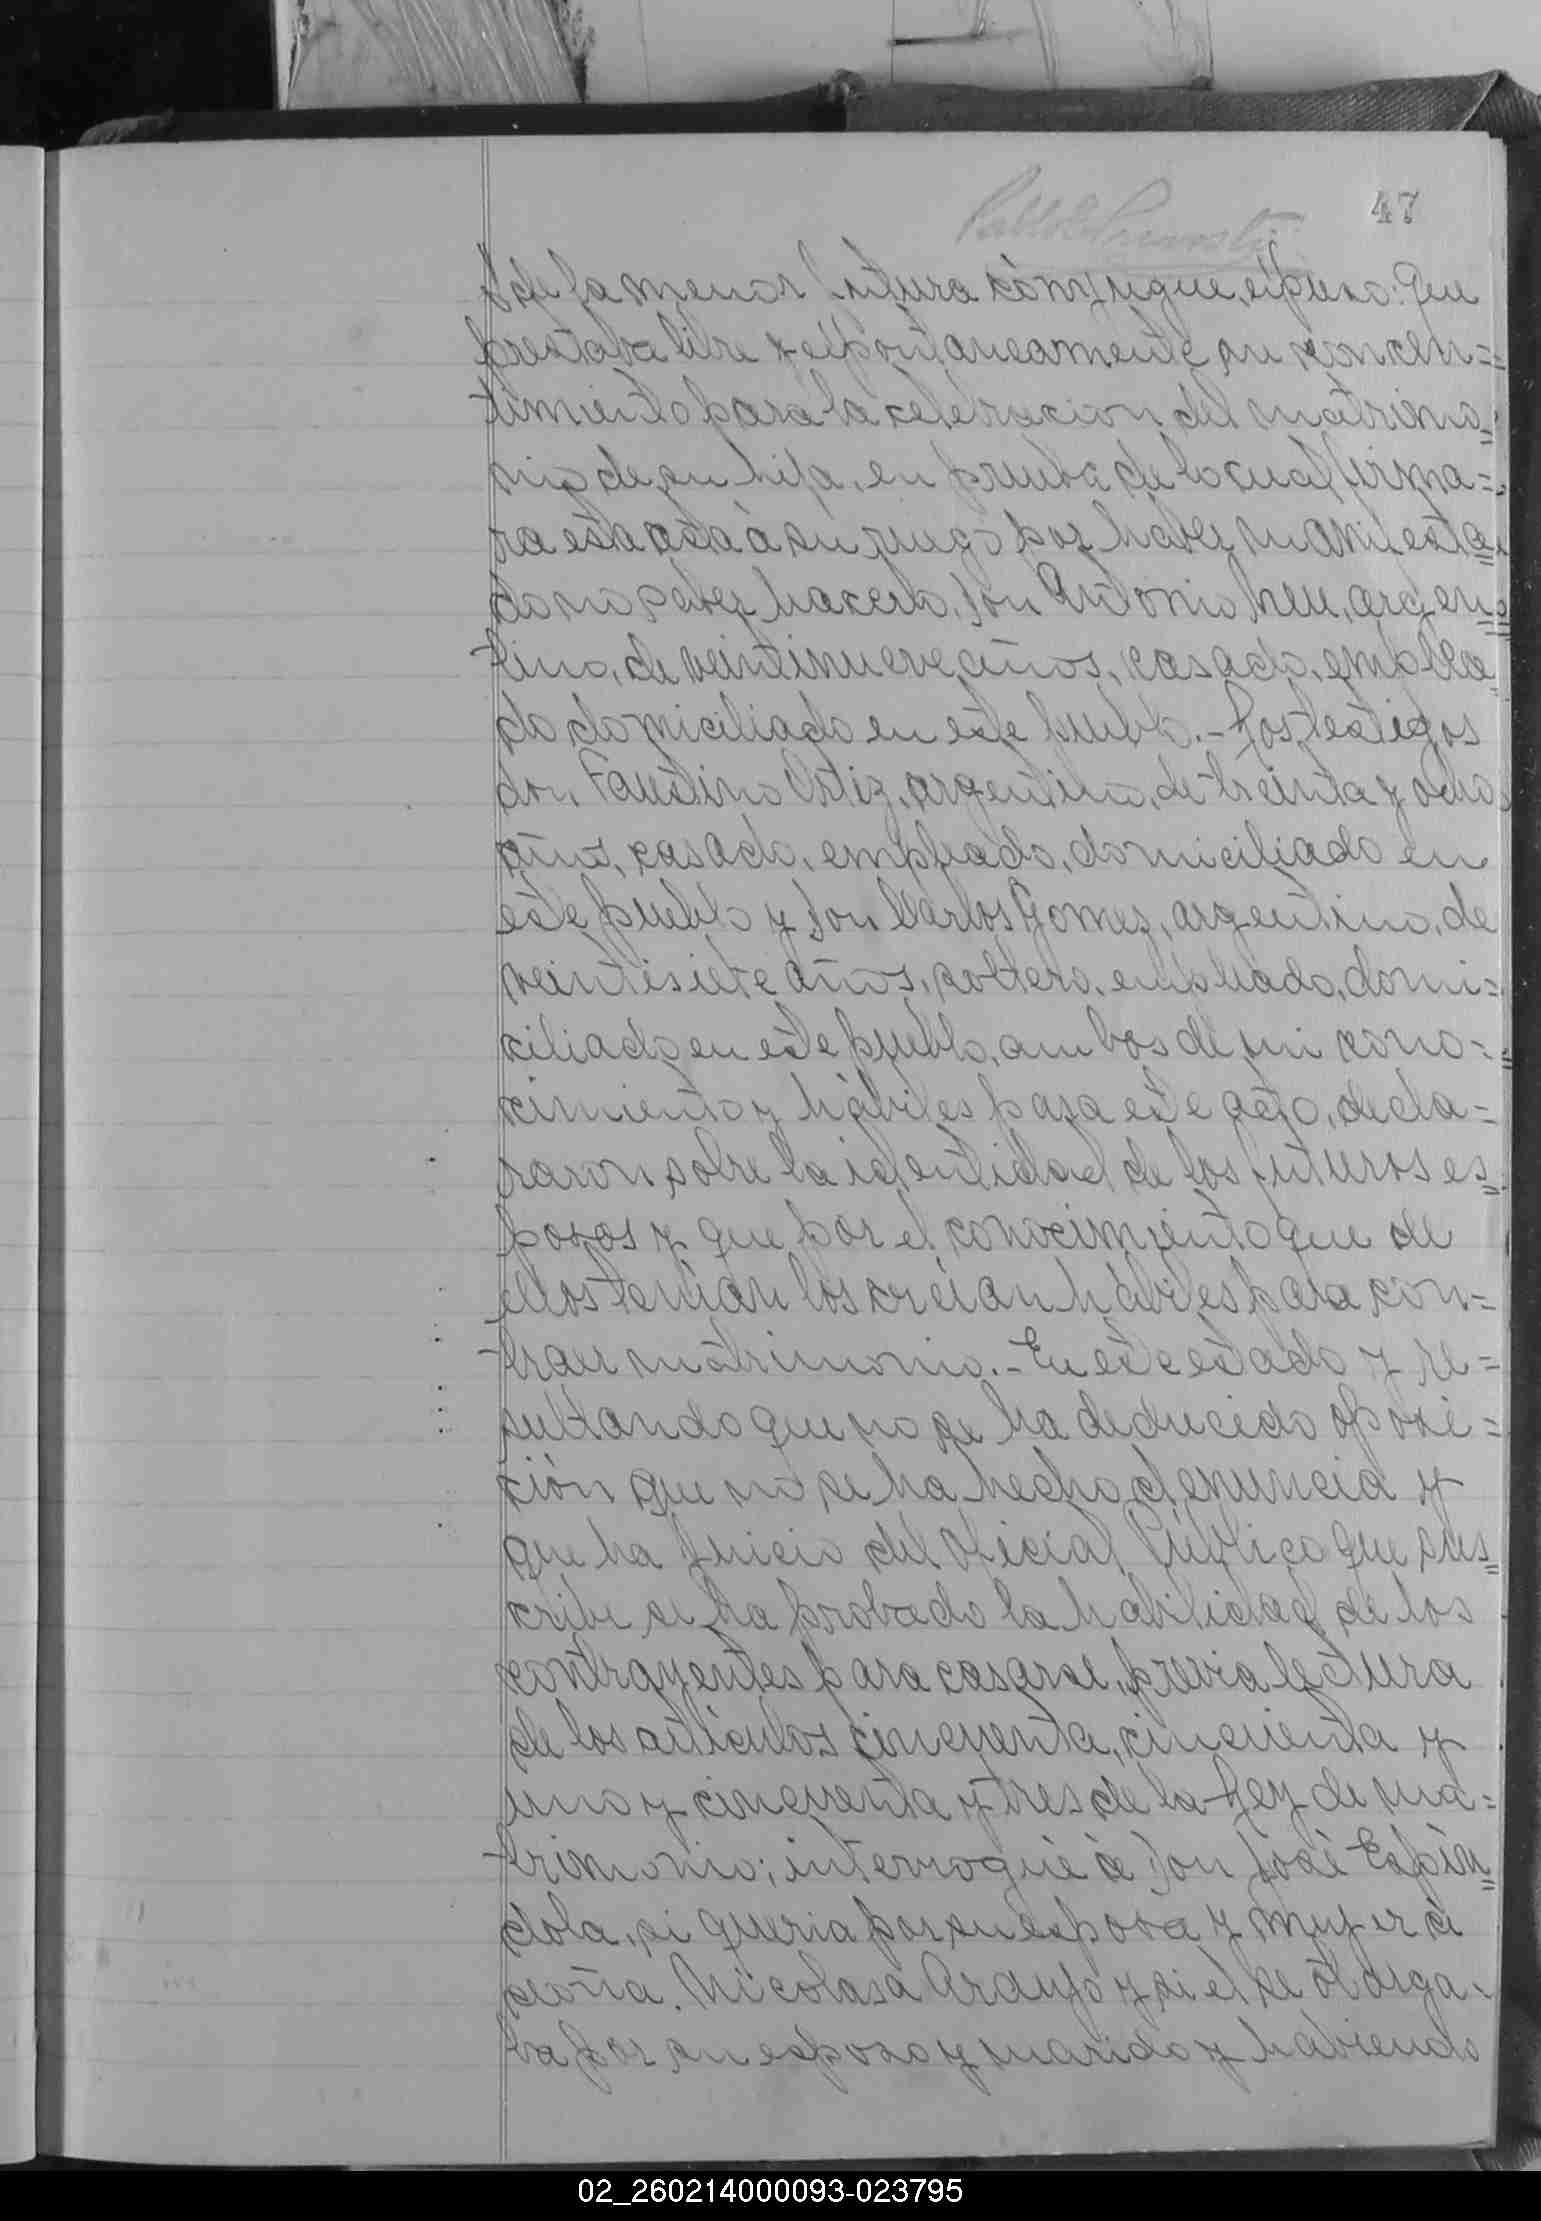 47
de la menor futura cónyugue, expuso: Que
prestaba libre y espontaneamente su concen=
timiento para la celebracion del matrimo=
nio de su hija, en prueba de lo cual firma=
ra esta acta á su ruego por haber manifesta=
do no saber hacerlo, don Antonio Neu, argen=
tino, de veintinueve años, casado, emplea=
do domiciliado en este pueblo.- Los testigos
don Faustino Ortiz, argentino, de treinta y ocho
años, casado, empleado, domiciliado en
este pueblo y don Carlos Gomez, argentino, de
veintisiete años, soltero, empleado, domi=
ciliado en este pueblo, ambos de mi cono=
cimiento y hábiles para este acto, decla=
raron sobre la identidad de los futuros es=
posos y que por el conocimiento que de
ellos tenían los creían hábiles para con=
traer matrimonio.- En este estado y re=
sultando que no se ha deducido oposi=
ción que no se ha hecho denuncia y
que ha juicio del Oficial Público que sus=
cribe se ha probado la habilidad de los
contrayentes para casarse, previa lectura
de los artículos cincuenta, cincuenta y
uno y cincuenta y tres de la Ley de ma=
trimonio; interrogué á don José Espín=
dola, si queria por su esposa y mujer á
doña. Nicolasa Araujo y si el se otorga=
ba por su esposo y marido y habiendo
02_260214000093-023795